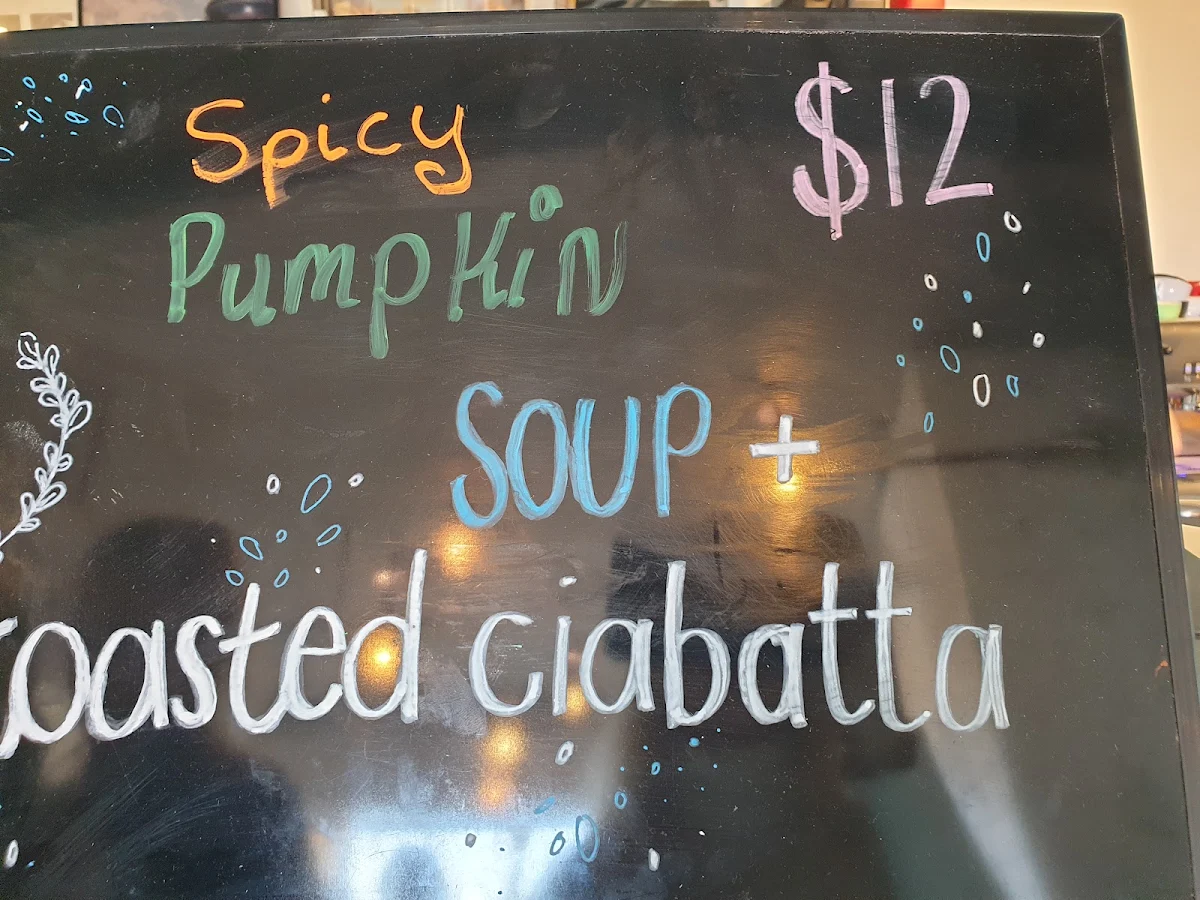 Spicy $12
PumpKin
SOUP +
roasted ciabatta